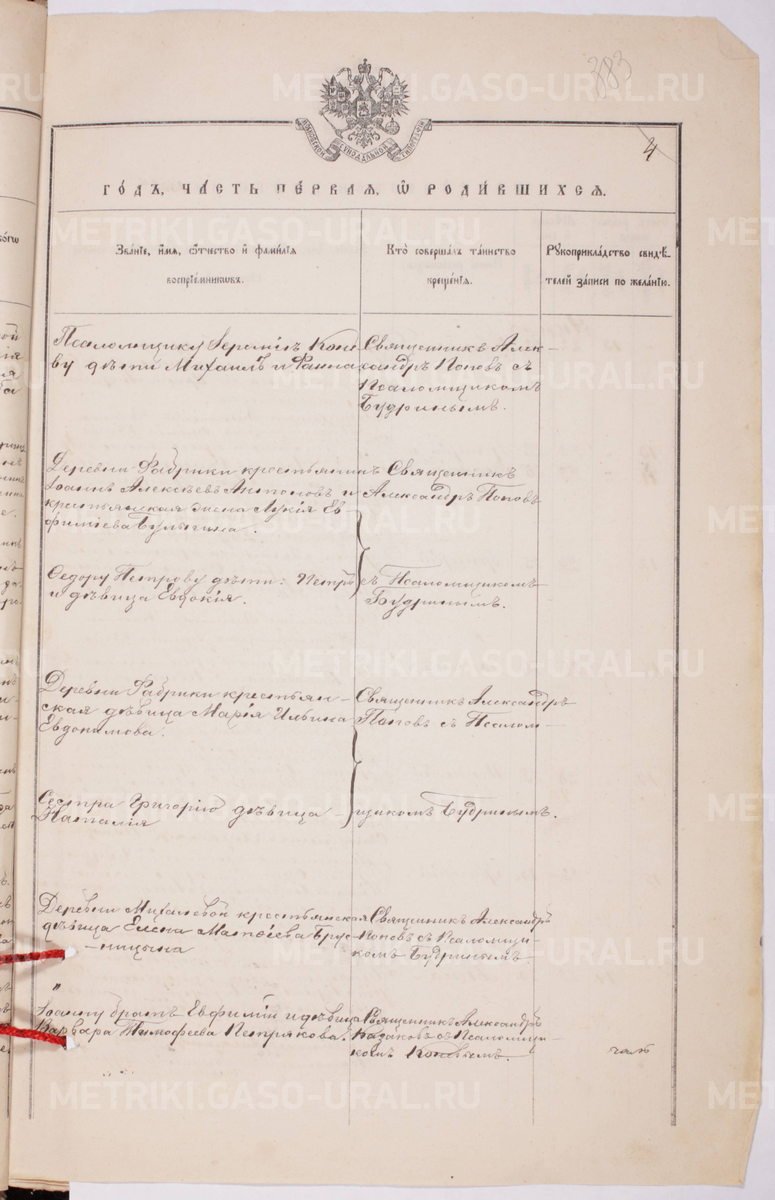 383
4
МОСКОВСКОЙ СѴНОДАЛЬНОЙ ТИПОГРАФІИ
ГОДЪ, ЧАСТЬ ПЕРВАЯ, Ѡ РОДИВШИХСЯ.
Званіе, имя, ѻтчество и фамилія
воспріемниковъ.
Кто совершалъ таинство
крещенія.
Рукоприкладство свидѣ-
телей записи по желанію.
Псаломщику Іереміѣ Коне-
ву дѣти Михаилъ и Фаина
Священникъ Алек-
сандръ Поповъ съ
Псаломщикомъ
Будринымъ.
Деревни Фабрики крестьянинъ
Іоаннъ Алексѣевъ Антоновъ и
крестьянская жена Лукія Ев
фиміева Булычина.
Священникъ
Александръ Поповъ
Ѳедору Петрову дѣти: Петръ
и дѣвица Евдокія.
съ Псаломщикомъ
Будринымъ.
Деревни Фабрики крестьян-
ская дѣвица Марія Ильина
Евдокимова.
Священникъ Александръ
Поповъ съ Псалом-
Сестра Григорію дѣвица
Наталія
щикомъ Будринымъ.
Деревни Михалевой крестьянская
дѣвица Елена Матѳеева Брус-
ницына
Священникъ Александръ
Поповъ съ Псаломщи-
комъ Будринымъ.
"
Іоанну братъ Евфимій и дѣвица
Варвара Тимофеева Петрякова.
Священникъ Александръ
Казаковъ съ Псаломщи-
комъ Коневымъ.
METRIKI.GASO-URAL.RU